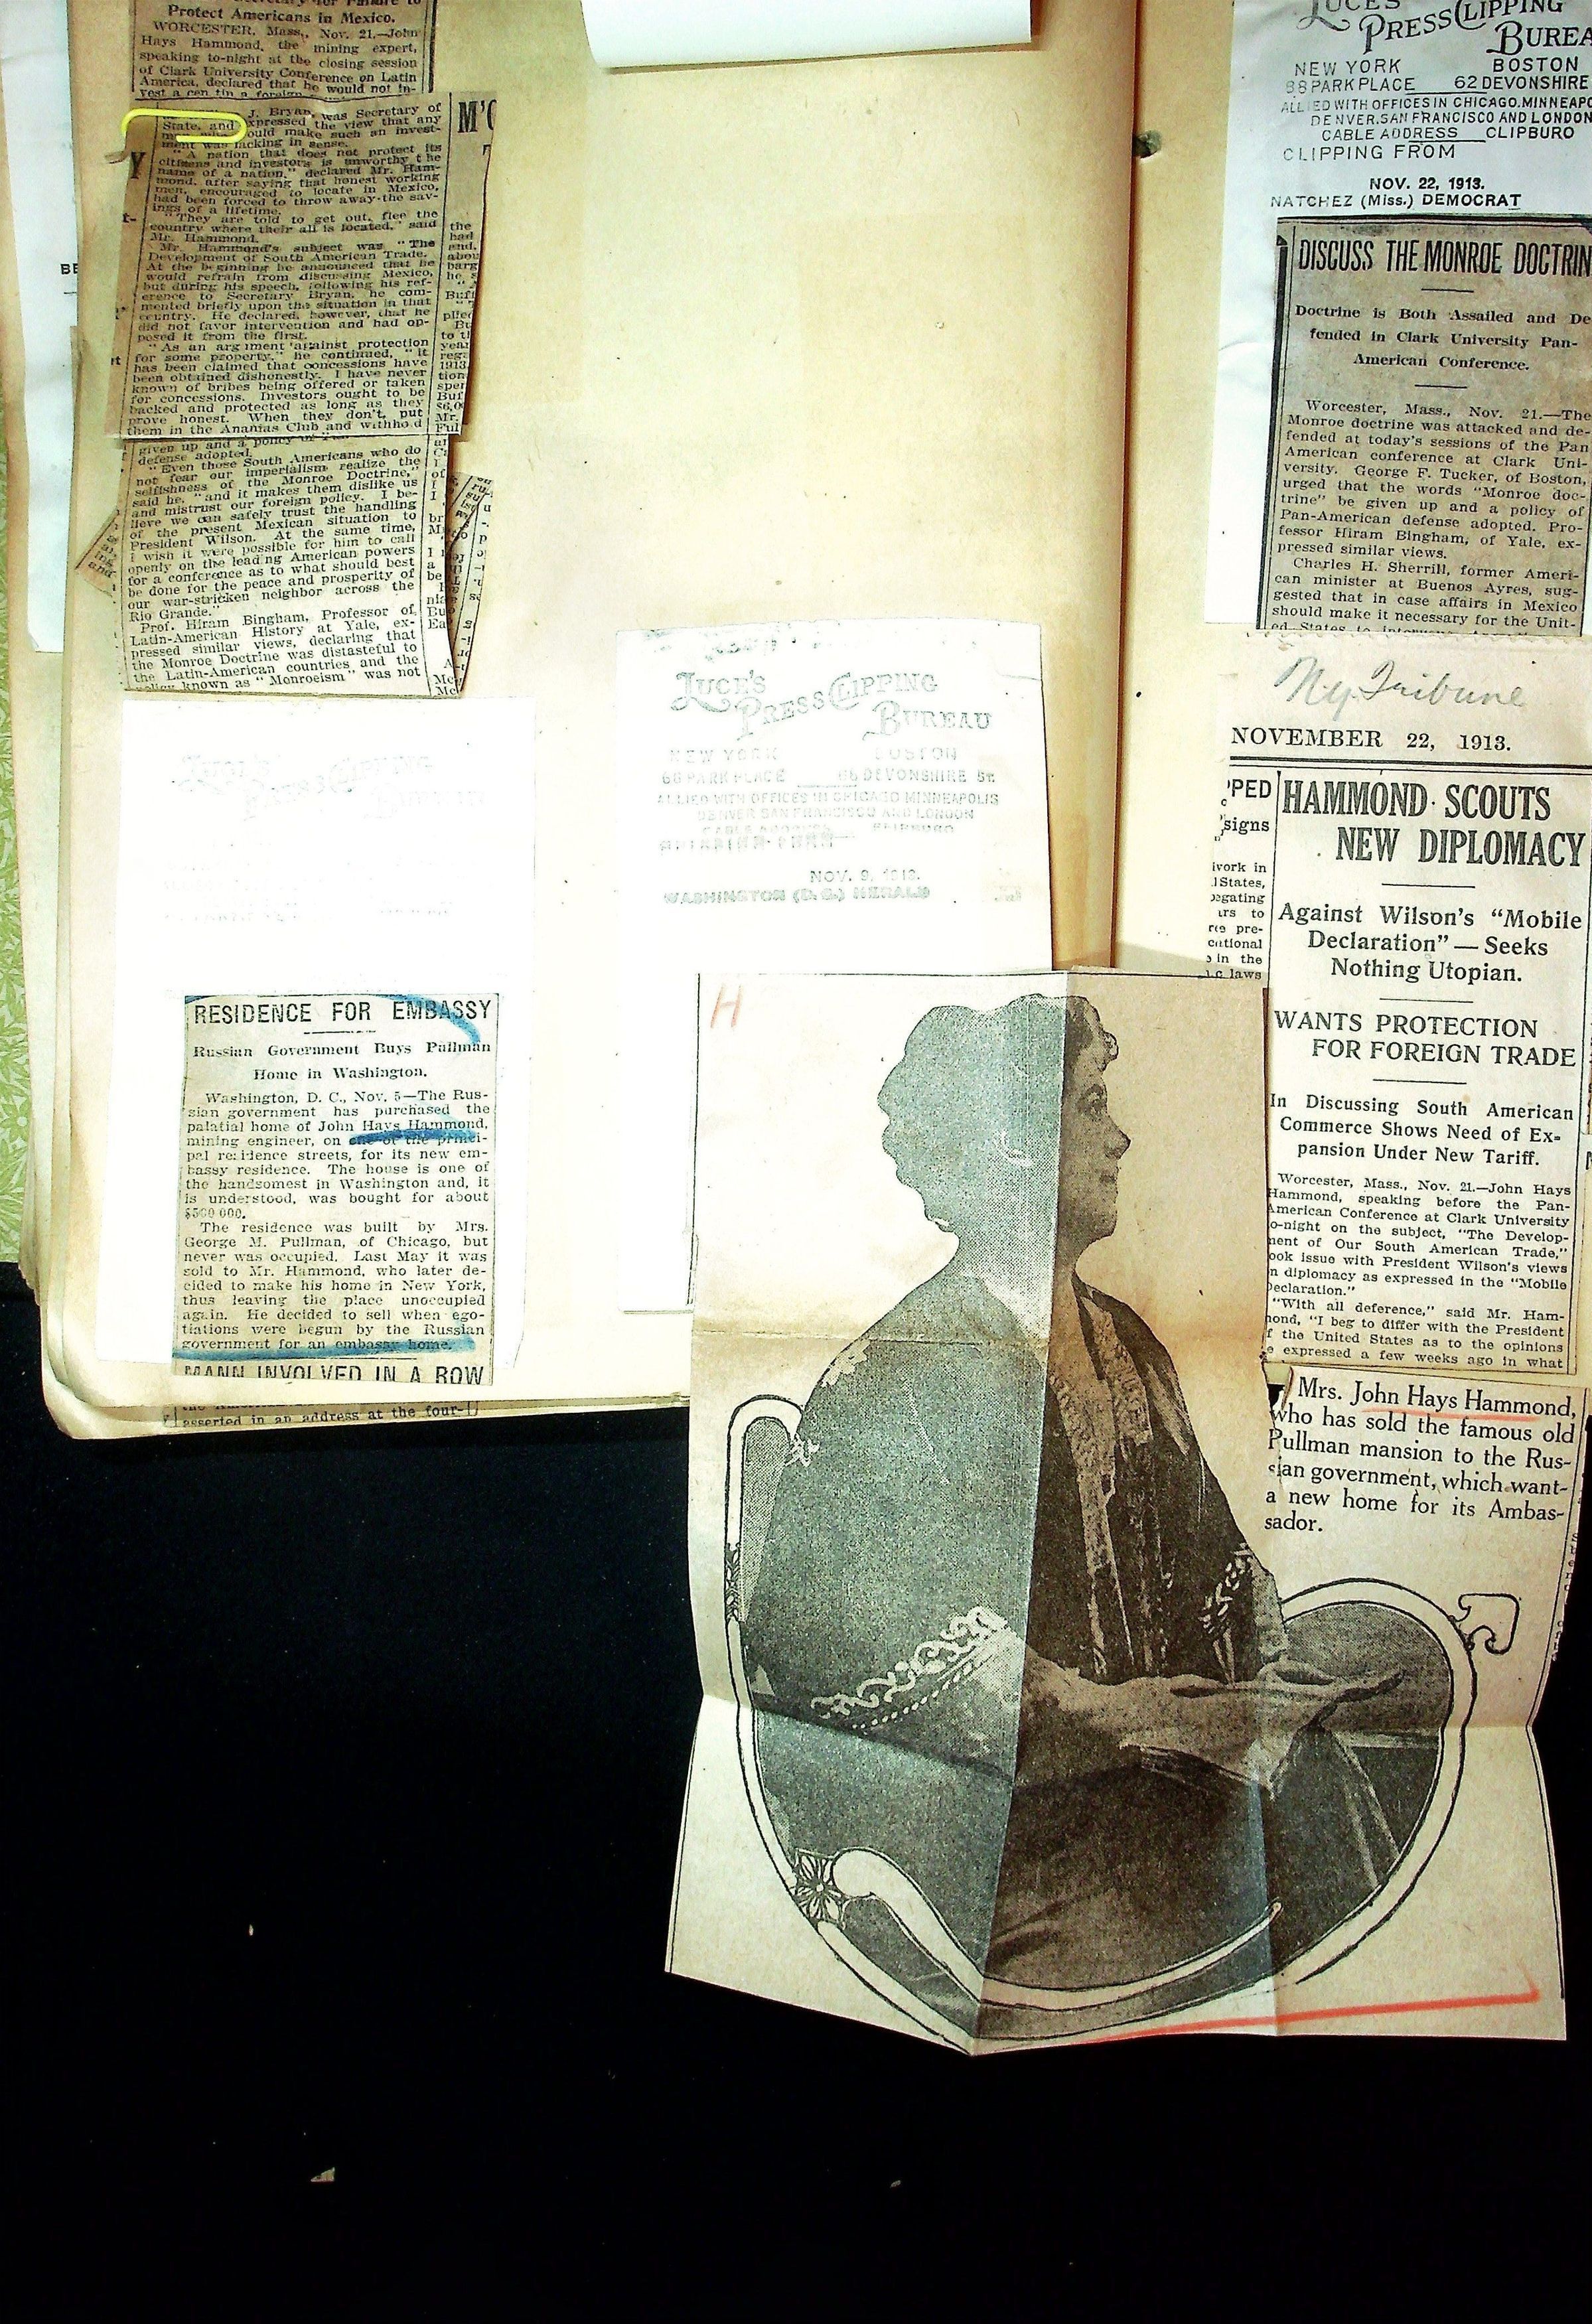 Protect Americans in Mexico.
WORCESTER, Mass., Nov. 21.—John
Hays Hammond, the mining expert,
speaking to-night at the closing session
of Clark University Conference on Latin
America, declared that he would not in-
vest a cen tin a foreign
J. Bryan was Secretary of
State, and expressed the view that any
ould make such an invest-
ment was lacking in sense.
"A nation that does not protect its
citizens and investors is unworthy t he
name of a nation," declared Mr. Ham-
mond, after saying that honest working
men, encouraged to locate in Mexico,
had been forced to throw away the sav-
ings of a lifetime.
"They are told to get out, flee the
country where their all is located," said
Mr. Hammond.
Mr. Hammond's subject was "The
Development of South American Trade.
At the beginning he announced that he
would refrain from discussing Mexico,
but during his speech, following his ref-
erence to Secretary Bryan, he com-
mented briefly upon the situation in that
country. He declared, however, that he
did not favor intervention and had op-
posed it from the first.
"As an argiment against protection
for some property," he continued, "it
has been claimed that concessions have
been obtained dishonestly. I have never
known of bribes being offered or taken
for concessions. Investors ought to be
backed and protected as long as they
prove honest. When they don't, put
them in the Ananias Club and withhold
given up and a policy of
defense adopted.
"Even those South Americans who do
not fear our imperialism realize the
selfishness of the Monroe Doctrine,"
said he, "and it makes them dislike us
and mistrust our foreign policy. I be-
lieve we can safely trust the handling
of the present Mexican situation to
President Wilson. At the same time,
I wish it were possible for him to call
openly on the leading American powers
for a conference as to what should best
be done for the peace and prosperity of
our war-stricken neighbor across the
Rio Grande."
Prof. Hiram Bingham, Professor of
Latin-American History at Yale, ex-
pressed similar views, declaring that
the Monroe Doctrine was distasteful to
the Latin-American countries and the
policy known as "Monroeism" was not
LUCE'S
PRESS CLIPPING
BUREAU
NEW YORK BOSTON
68 PARK PLACE 66 DEVONSHIRE St.
ALLIED WITH OFFICES IN CHICAGO MINNEAPOLIS
DENVER SAN FRANCISCO AND LONDON
NOV. 9, 1913.
WASHINGTON (D. C.) HERALD
RESIDENCE FOR EMBASSY
Russian Government Buys Pullman
Home in Washington.
Washington, D. C., Nov. 5—The Rus-
sian government has purchased the
palatial home of John Hays Hammond,
mining engineer, on one of the princi-
pal residence streets, for its new em-
bassy residence. The house is one of
the handsomest in Washington and, it
is understood, was bought for about
$500 000.
The residence was built by Mrs.
George M. Pullman, of Chicago, but
never was occupied. Last May it was
sold to Mr. Hammond, who later de-
cided to make his home in New York,
thus leaving the place unoccupied
again. He decided to sell when ego-
tiations were begun by the Russian
government for an embassy home.
MANN INVOLVED IN A ROW
asserted in an address at the four-
H
LUCE'S
PRESS CLIPPING
BUREA
NEW YORK BOSTON
88 PARK PLACE 62 DEVONSHIRE
ALLIED WITH OFFICES IN CHICAGO. MINNEAPO
DENVER. SAN FRANCISCO AND LONDON
CABLE ADDRESS CLIPBURO
CLIPPING FROM
NOV. 22, 1913.
NATCHEZ (Miss.) DEMOCRAT
DISCUSS THE MONROE DOCTRIN
Doctrine is Both Assailed and De-
fended in Clark University Pan-
American Conference.
Worcester, Mass., Nov. 21.—The
Monroe doctrine was attacked and de-
fended at today's sessions of the Pan
American conference at Clark Uni-
versity. George F. Tucker, of Boston,
urged that the words "Monroe doc-
trine" be given up and a policy of
Pan-American defense adopted. Pro-
fessor Hiram Bingham, of Yale, ex-
pressed similar views.
Charles H. Sherrill, former Ameri-
can minister at Buenos Ayres, sug-
gested that in case affairs in Mexico
should make it necessary for the Unit-
ed States to
Ny Tribune
NOVEMBER 22, 1913.
HAMMOND SCOUTS
NEW DIPLOMACY
Against Wilson's "Mobile
Declaration"—Seeks
Nothing Utopian.
WANTS PROTECTION
FOR FOREIGN TRADE
In Discussing South American
Commerce Shows Need of Ex-
pansion Under New Tariff.
Worcester, Mass., Nov. 21.—John Hays
Hammond, speaking before the Pan-
American Conference at Clark University
o-night on the subject, "The Develop-
ment of Our South American Trade,"
ook issue with President Wilson's views
n diplomacy as expressed in the "Mobile
Declaration."
"With all deference," said Mr. Ham-
mond, "I beg to differ with the President
f the United States as to the opinions
e expressed a few weeks ago in what
Mrs. John Hays Hammond,
who has sold the famous old
Pullman mansion to the Rus-
sian government, which want-
a new home for its Ambas-
sador.